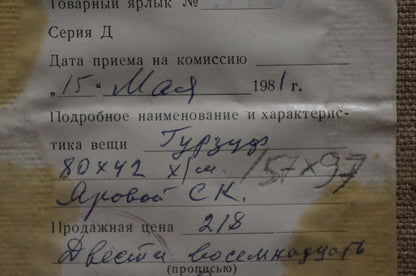 Товарный ярлык №
Серия Д
Дата приема на комиссию
„ 15 “ Мая 1981 г.
Подробное наименование и характерис-
тика вещи Гурзуф
80х42 х/м. 157х97
Яровой С К.
Продажная цена 218
Двести восемнадцать
(прописью)